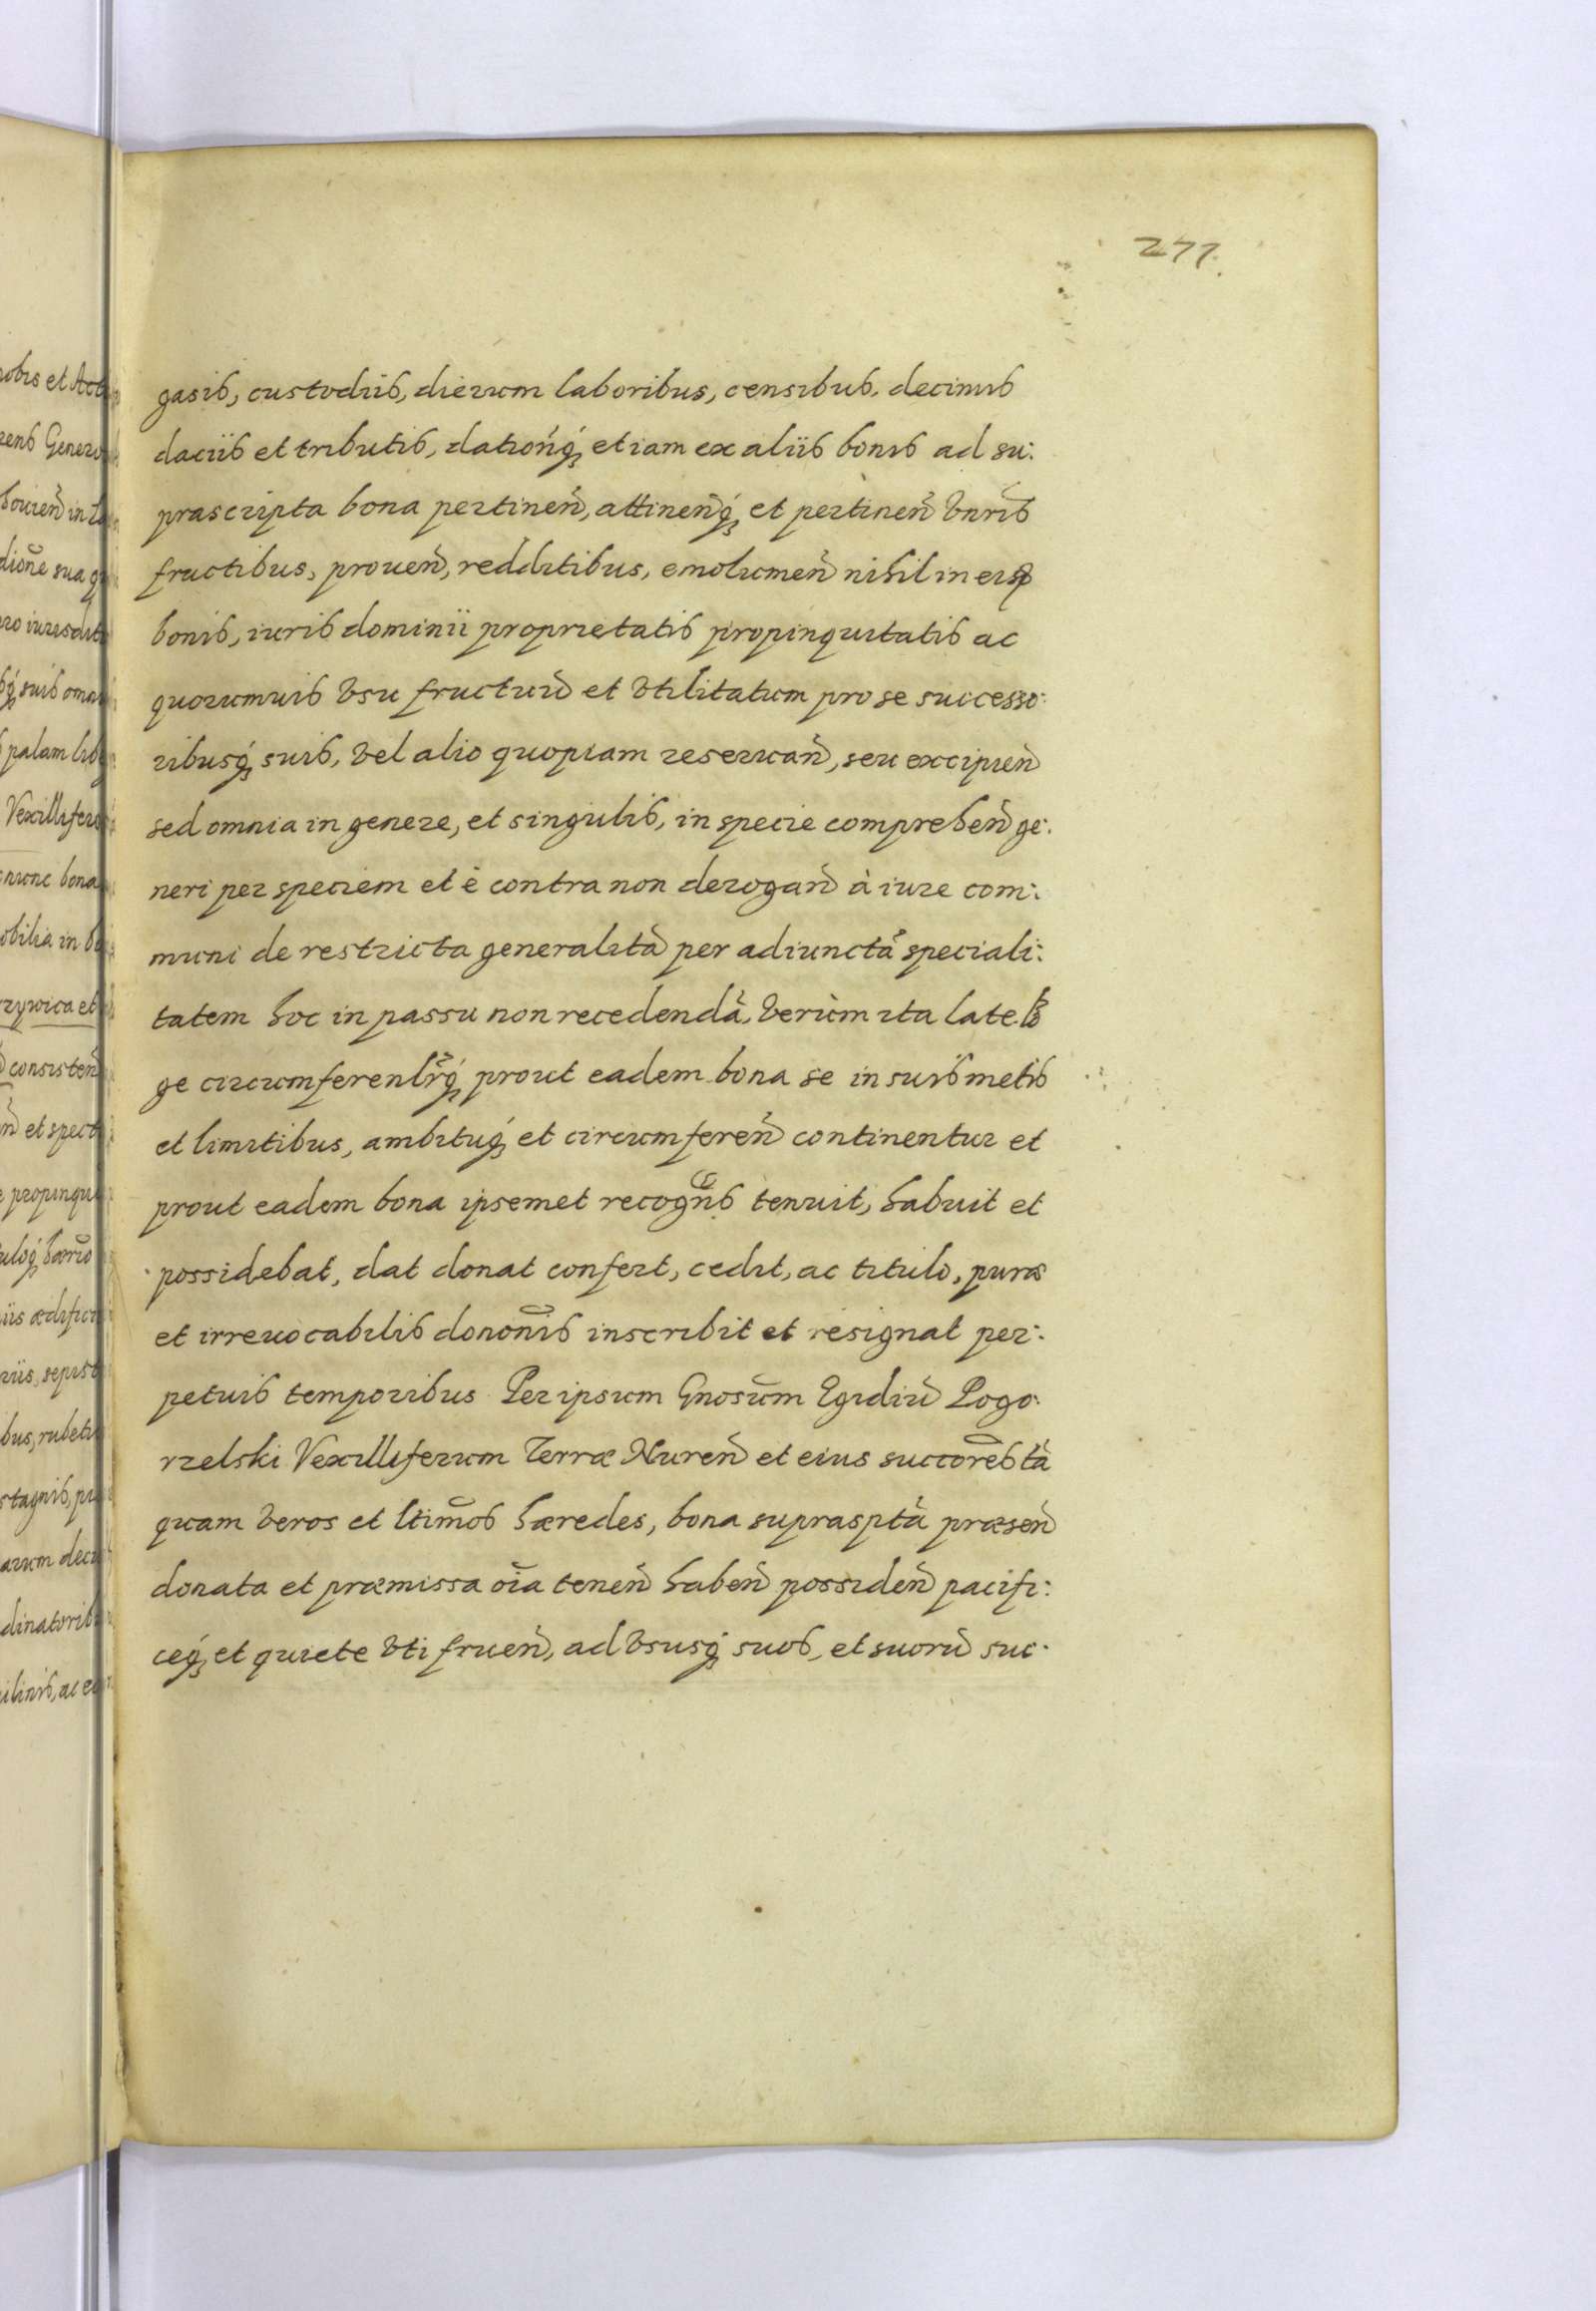 277.
gasis, custodiis, dierum laboribus, censibus, decimis
daciis et tributis, dationq́ꝫ etiam ex aliis bonis ad su:
prascripta bona pertineñ, attineñq́ꝫ et pertineñ vnris̃
fructibus, proueñ, redditibus, emolumeñ nihil in eisꝑ
bonis, iuris dominii proprietatis propinquitatis ac
quorumuis vsu fructuũ et vtilitatum pro se successo:
ribusq́ꝫ suis, vel alio quopiam reseruañ, seu excipieñ
sed omnia in genere, et singulis, in specie compreheñ ge:
neri per speciem et è contra non derogañ à iure com:
muni de restricta generalitã per adiunctã speciali:
tatem hoc in passu non recedendã, verùm ita late lõ
ge circumferenlr̃q́ꝫ prout eadem bona se in suis metis
et limitibus, ambituq́ꝫ et circumfereñ continentur et
prout eadem bona ipsemet recogñs tenuit, habuit et
possidebat, dat donat confert, cedit, ac titulo, puræ
et irreuocabilis donoñis inscribit et resignat per:
petuis temporibus Per ipsum Gnosum̃ Egidiũ Pogo:
rzelski Vexilliferum Terræ Nureñ et eius succorẽs tã
quam veros et ltim̃os hæredes, bona supraspta͂ præseñ
donata et præmissa oı͂a teneñ habeñ possideñ pacifi:
ceq́ꝫ et quiete vti frueñ, ad vsusq́ꝫ suos, et suorũ suc: